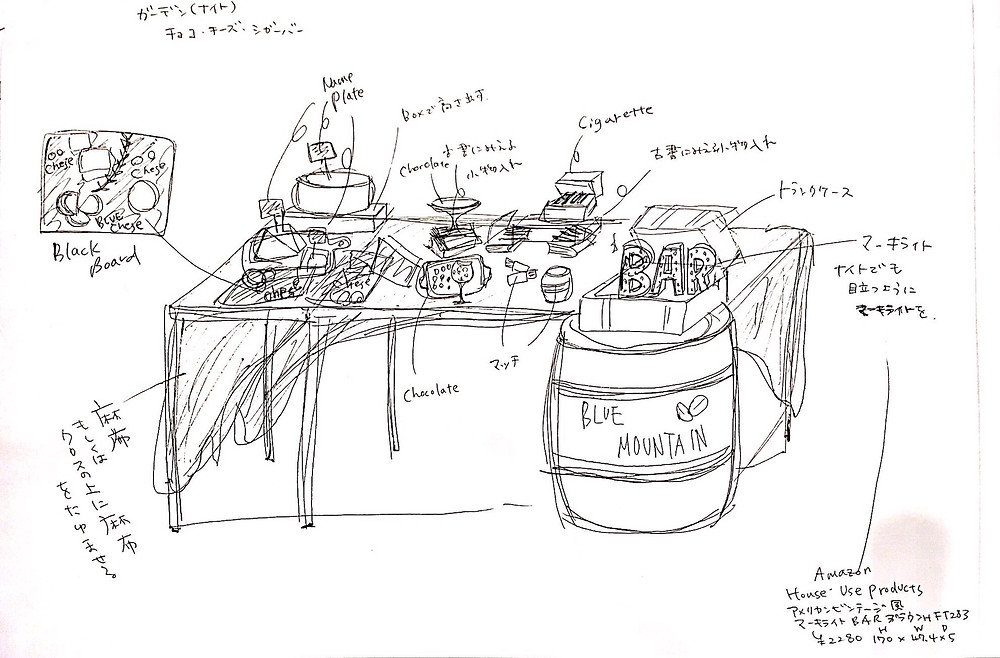 ガーデン(ナイト)
チョコ・チーズ・シガーバー
Name
Plate
Boxで高さ出す.
Chocolate
古書にみえる
小物入れ
Cigarette
古書にみえる小物入れ
トランクケース
マーキライト
ナイトでも
目立つように
マーキライトを.
Chese
Chese
BLUE
Chese
Black
Board
Chese
Chese
BAR
マッチ
Chocolate
BLUE
MOUNTAIN
麻布
もしくは
クロスの上に麻布
をたゆませる。
Amazon
House Use Products
アメリカンビンテージ風
マーキライト BAR ブラウン HFT283
H W D
¥2280 170×47.4×5